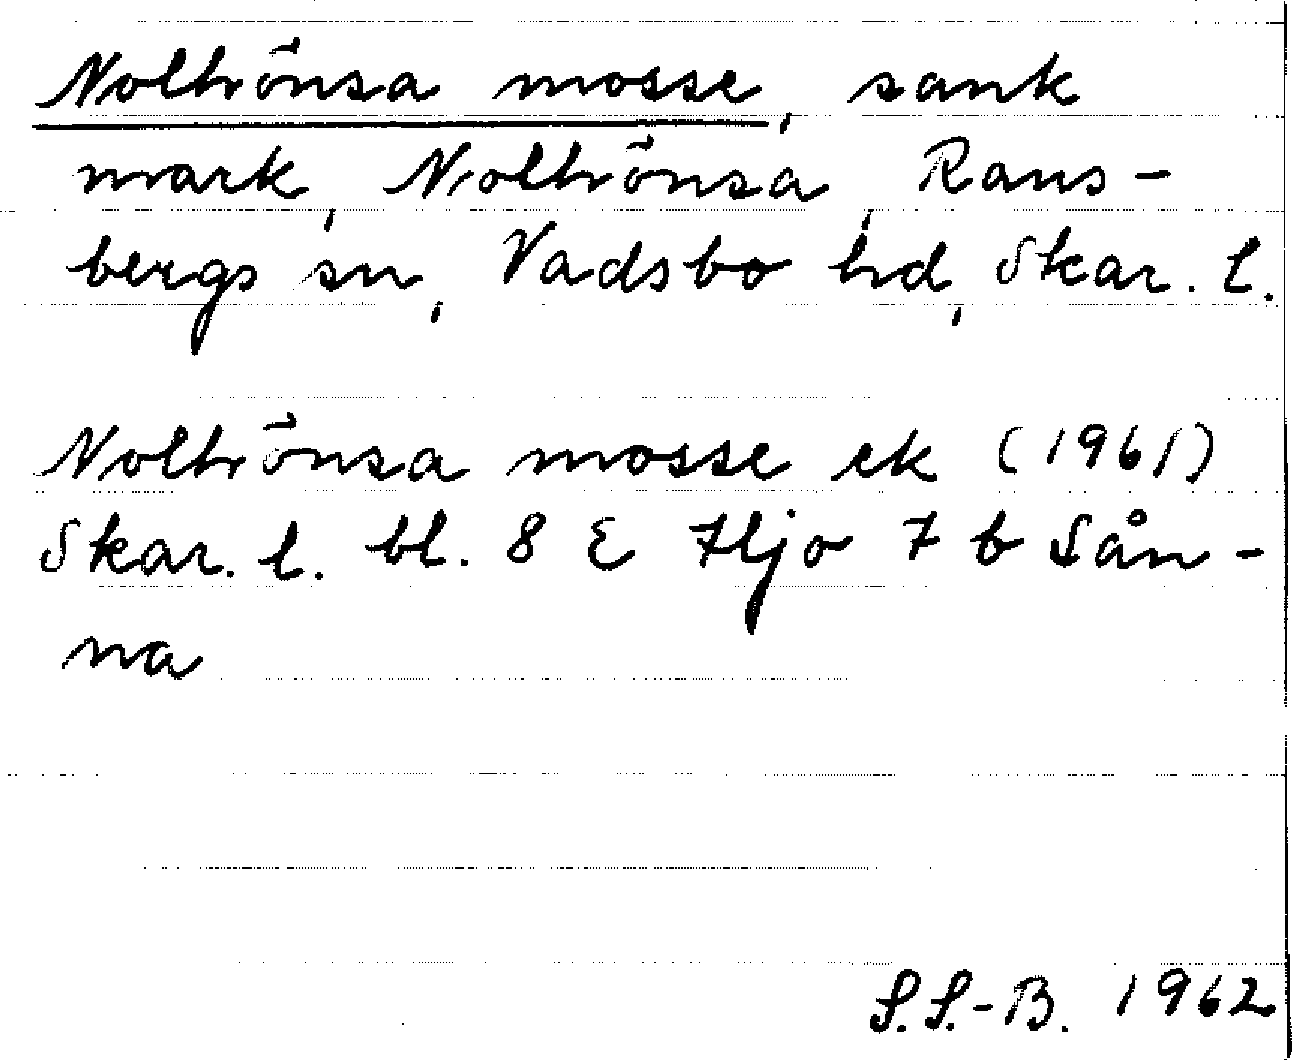 Nolhönsa mosse, sank
mark, Nolhönsa, Rans-
bergs sn, Vadsbo hd, Skar. l.
Nolhönsa mosse ek (1961)
Skar. l. bl. 8 E Hjo 7 b Sån-
na
S.S.-B. 1962